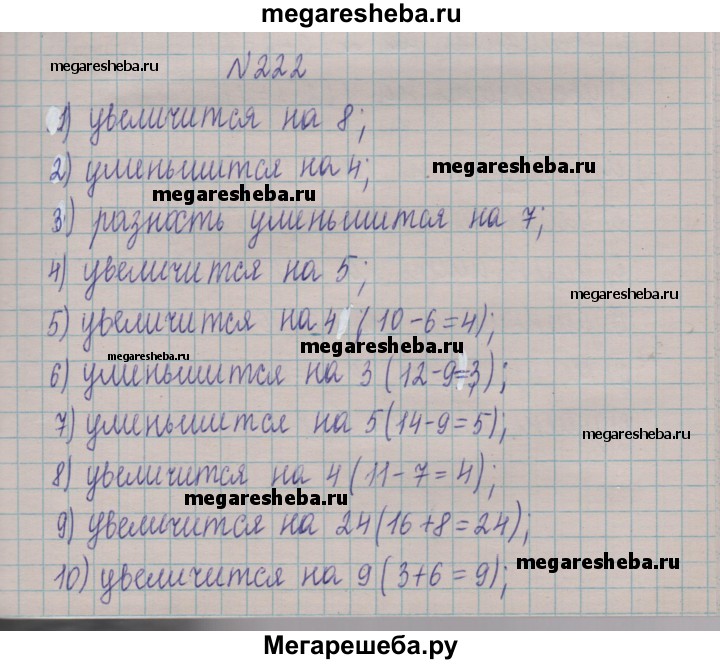 megaresheba.ru
№222
megaresheba.ru
1) увеличится на 8;
2) уменьшится на 4;
megaresheba.ru
megaresheba.ru
3) разность уменьшится на 7;
4) увеличится на 5;
megaresheba.ru
5) увеличится на 4 (10-6=4);
megaresheba.ru
megaresheba.ru
6) уменьшится на 3 (12-9=3);
7) уменьшится на 5 (14-9=5);
megaresheba.ru
8) увеличится на 4 (11-7=4);
megaresheba.ru
9) увеличится на 24 (16+8=24);
megaresheba.ru
10) увеличится на 9 (3+6=9);
Мегарешеба.ру